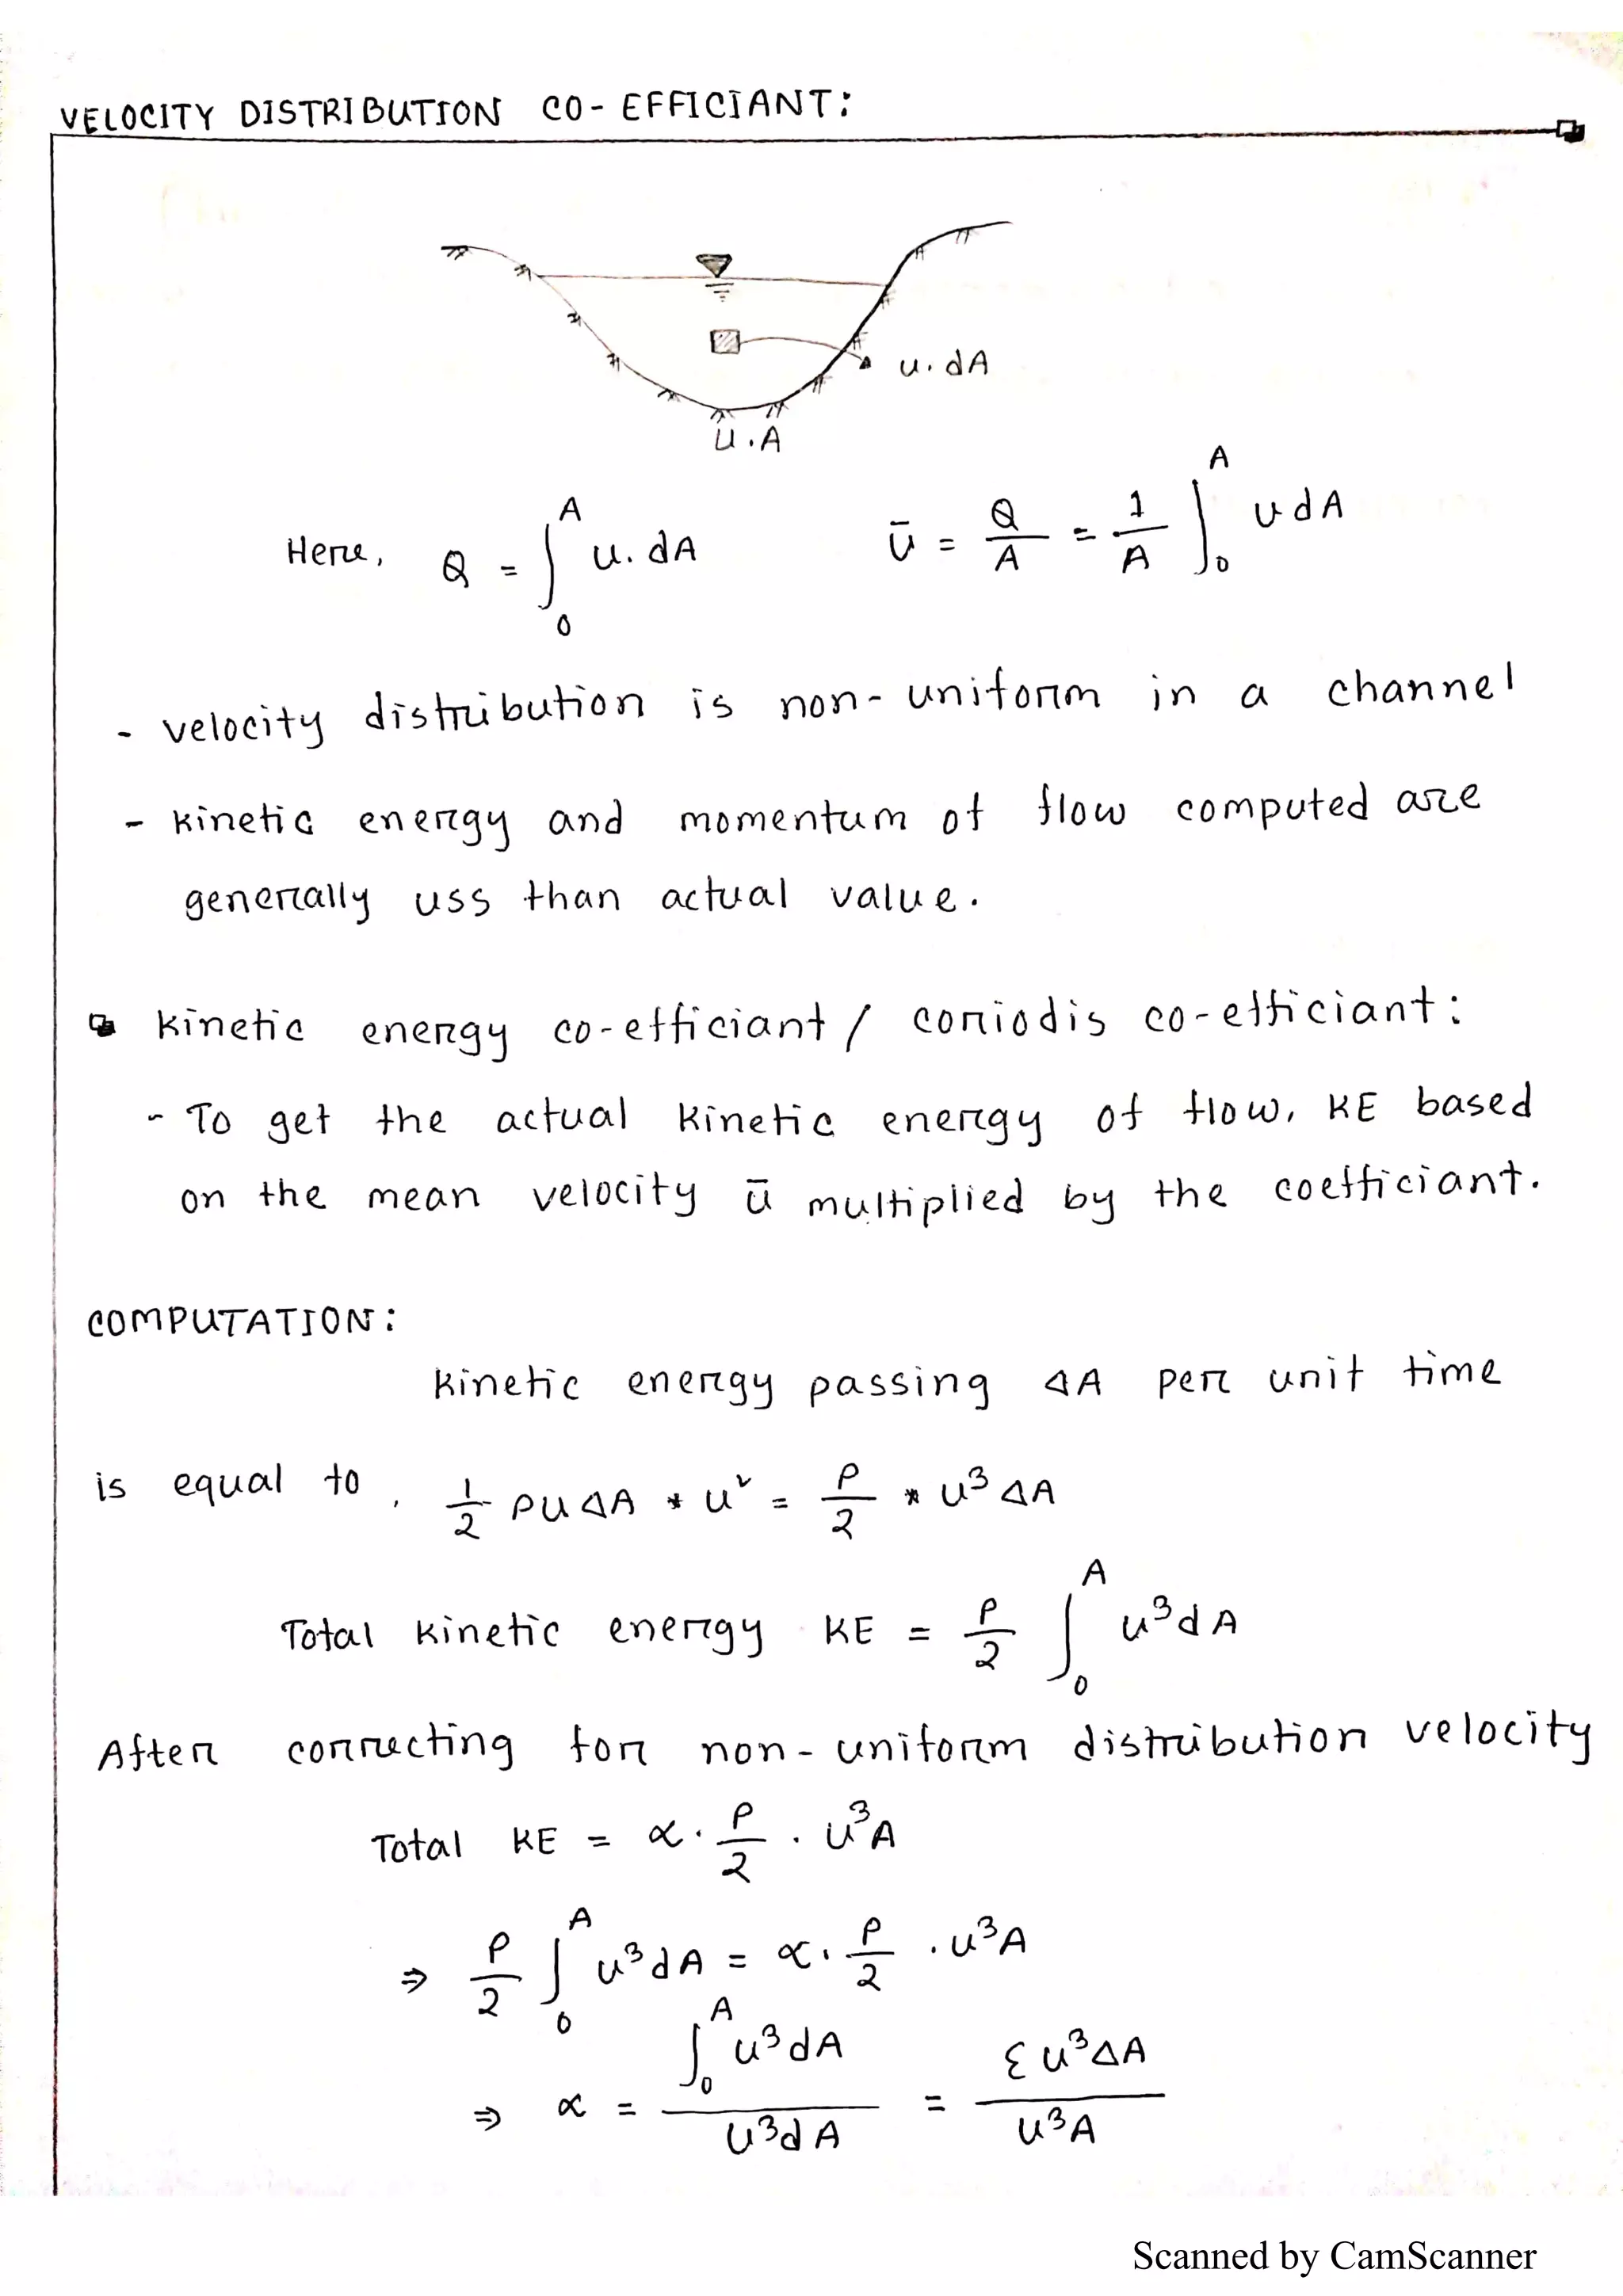 VELOCITY DISTRIBUTION CO-EFFICIANT:
u.dA
U.A
Here, Q = ∫₀ᴬ u.dA ū = Q/A = 1/A ∫₀ᴬ u dA
- velocity distribution is non-uniform in a channel
- kinetic energy and momentum of flow computed are
generally less than actual value.
kinetic energy co-efficiant / coriodis co-efficiant:
- To get the actual kinetic energy of flow, KE based
on the mean velocity ū multiplied by the coefficiant.
COMPUTATION:
kinetic energy passing ΔA per unit time
is equal to, 1/2 ρuΔA * u² = ρ/2 * u³ΔA
Total kinetic energy KE = ρ/2 ∫₀ᴬ u³dA
After correcting for non-uniform distribution velocity
Total KE = α . ρ/2 . u³A
⇒ ρ/2 ∫₀ᴬ u³dA = α . ρ/2 . u³A
⇒ α = ∫₀ᴬ u³dA / u³dA = Σu³ΔA / u³A
Scanned by CamScanner